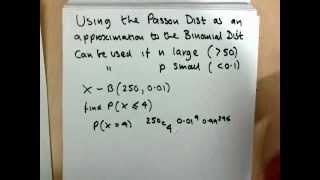 Using the Poisson Dist as an
approximation to the Binomial Dist
Can be used if n large (>50)
" p small (<0.1)
X ~ B(250, 0.01)
find P(X ≤ 4)
P(X = 4) 250C4 0.01⁴ 0.99²⁴⁶